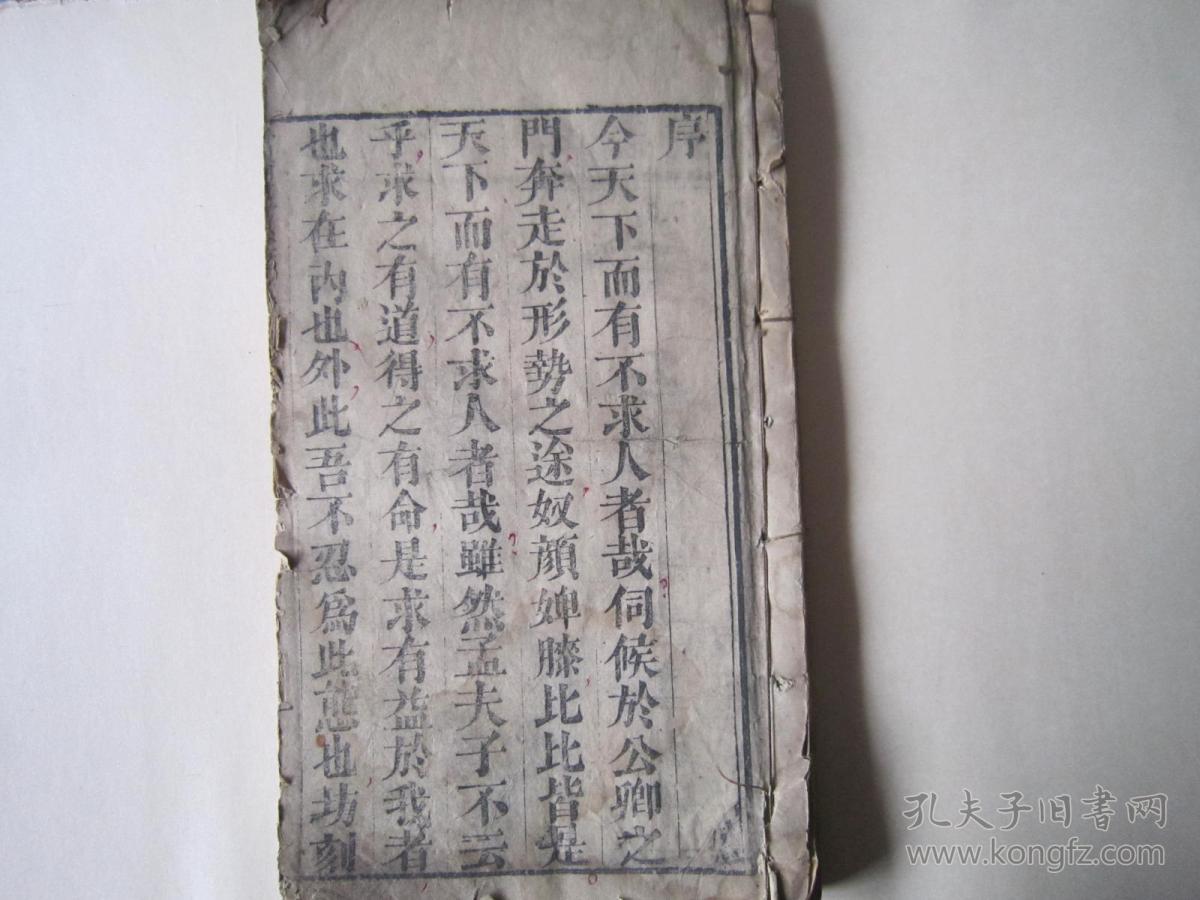 序
今天下而有不求人者哉伺候於公卿之
門奔走於形勢之途奴顔婢膝比比皆是
天下而有不求人者哉雖然孟夫子不云
乎求之有道得之有命是求有益於我者
也求在內也外此吾不忍爲此態也坊刻
孔夫子旧书网
www.kongfz.com